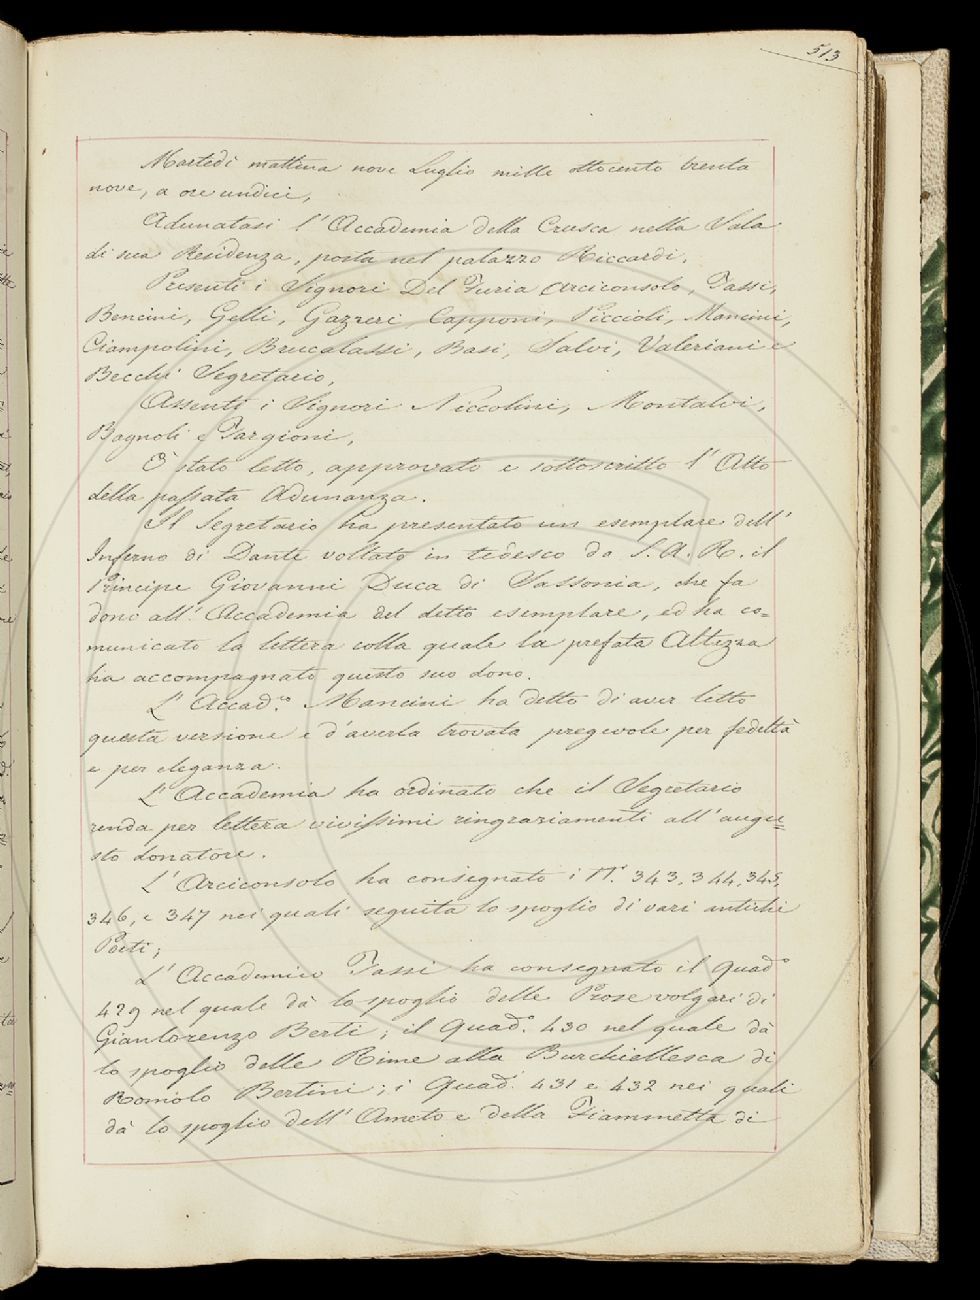 513
Martedì mattina nove Luglio mille ottocento trenta
nove, a ore undici,
Adunatasi l'Accademia della Crusca nella Sala
di sua Residenza, posta nel palazzo Riccardi.
Presenti i Signori Del Furia Arciconsolo, Tassi,
Bencini, Gelli, Gazzeri Capponi, Piccioli, Mancini,
Ciampolini, Brucalassi, Basi, Salvi, Valeriani e
Becchi Segretario,
Assenti i Signori Niccolini, Montalvi,
Bagnoli e Targioni,
È stato letto, approvato e sottoscritto l'Atto
della passata Adunanza.
Il Segretario ha presentato un esemplare dell'
Inferno di Dante voltato in tedesco da S. A. R. il
Principe Giovanni Duca di Sassonia, che fa
dono all'Accademia del detto esemplare, ed ha co=
municato la lettera colla quale la prefata Altezza
ha accompagnato questo suo dono.
L'Accad.º Mancini ha detto di aver letto
questa versione e d'averla trovata pregevole per fedeltà
e per eleganza.
L'Accademia ha ordinato che il Segretario
renda per lettera vivissimi ringraziamenti all'augu=
sto donatore.
L'Arciconsolo ha consegnato i Nⁱ. 343, 344, 345,
346, e 347 nei quali seguita lo spoglio di vari antichi
Poeti;
L'Accademico Tassi ha consegnato il Quad.º
429 nel quale dà lo spoglio delle Prose volgari di
Gianlorenzo Berti; il Quad.º 430 nel quale dà
lo spoglio delle Rime alla Burchiellesca di
Romolo Bertini; i Quad. 431 e 432 nei quali
dà lo spoglio dell'Ameto e della Fiammetta di